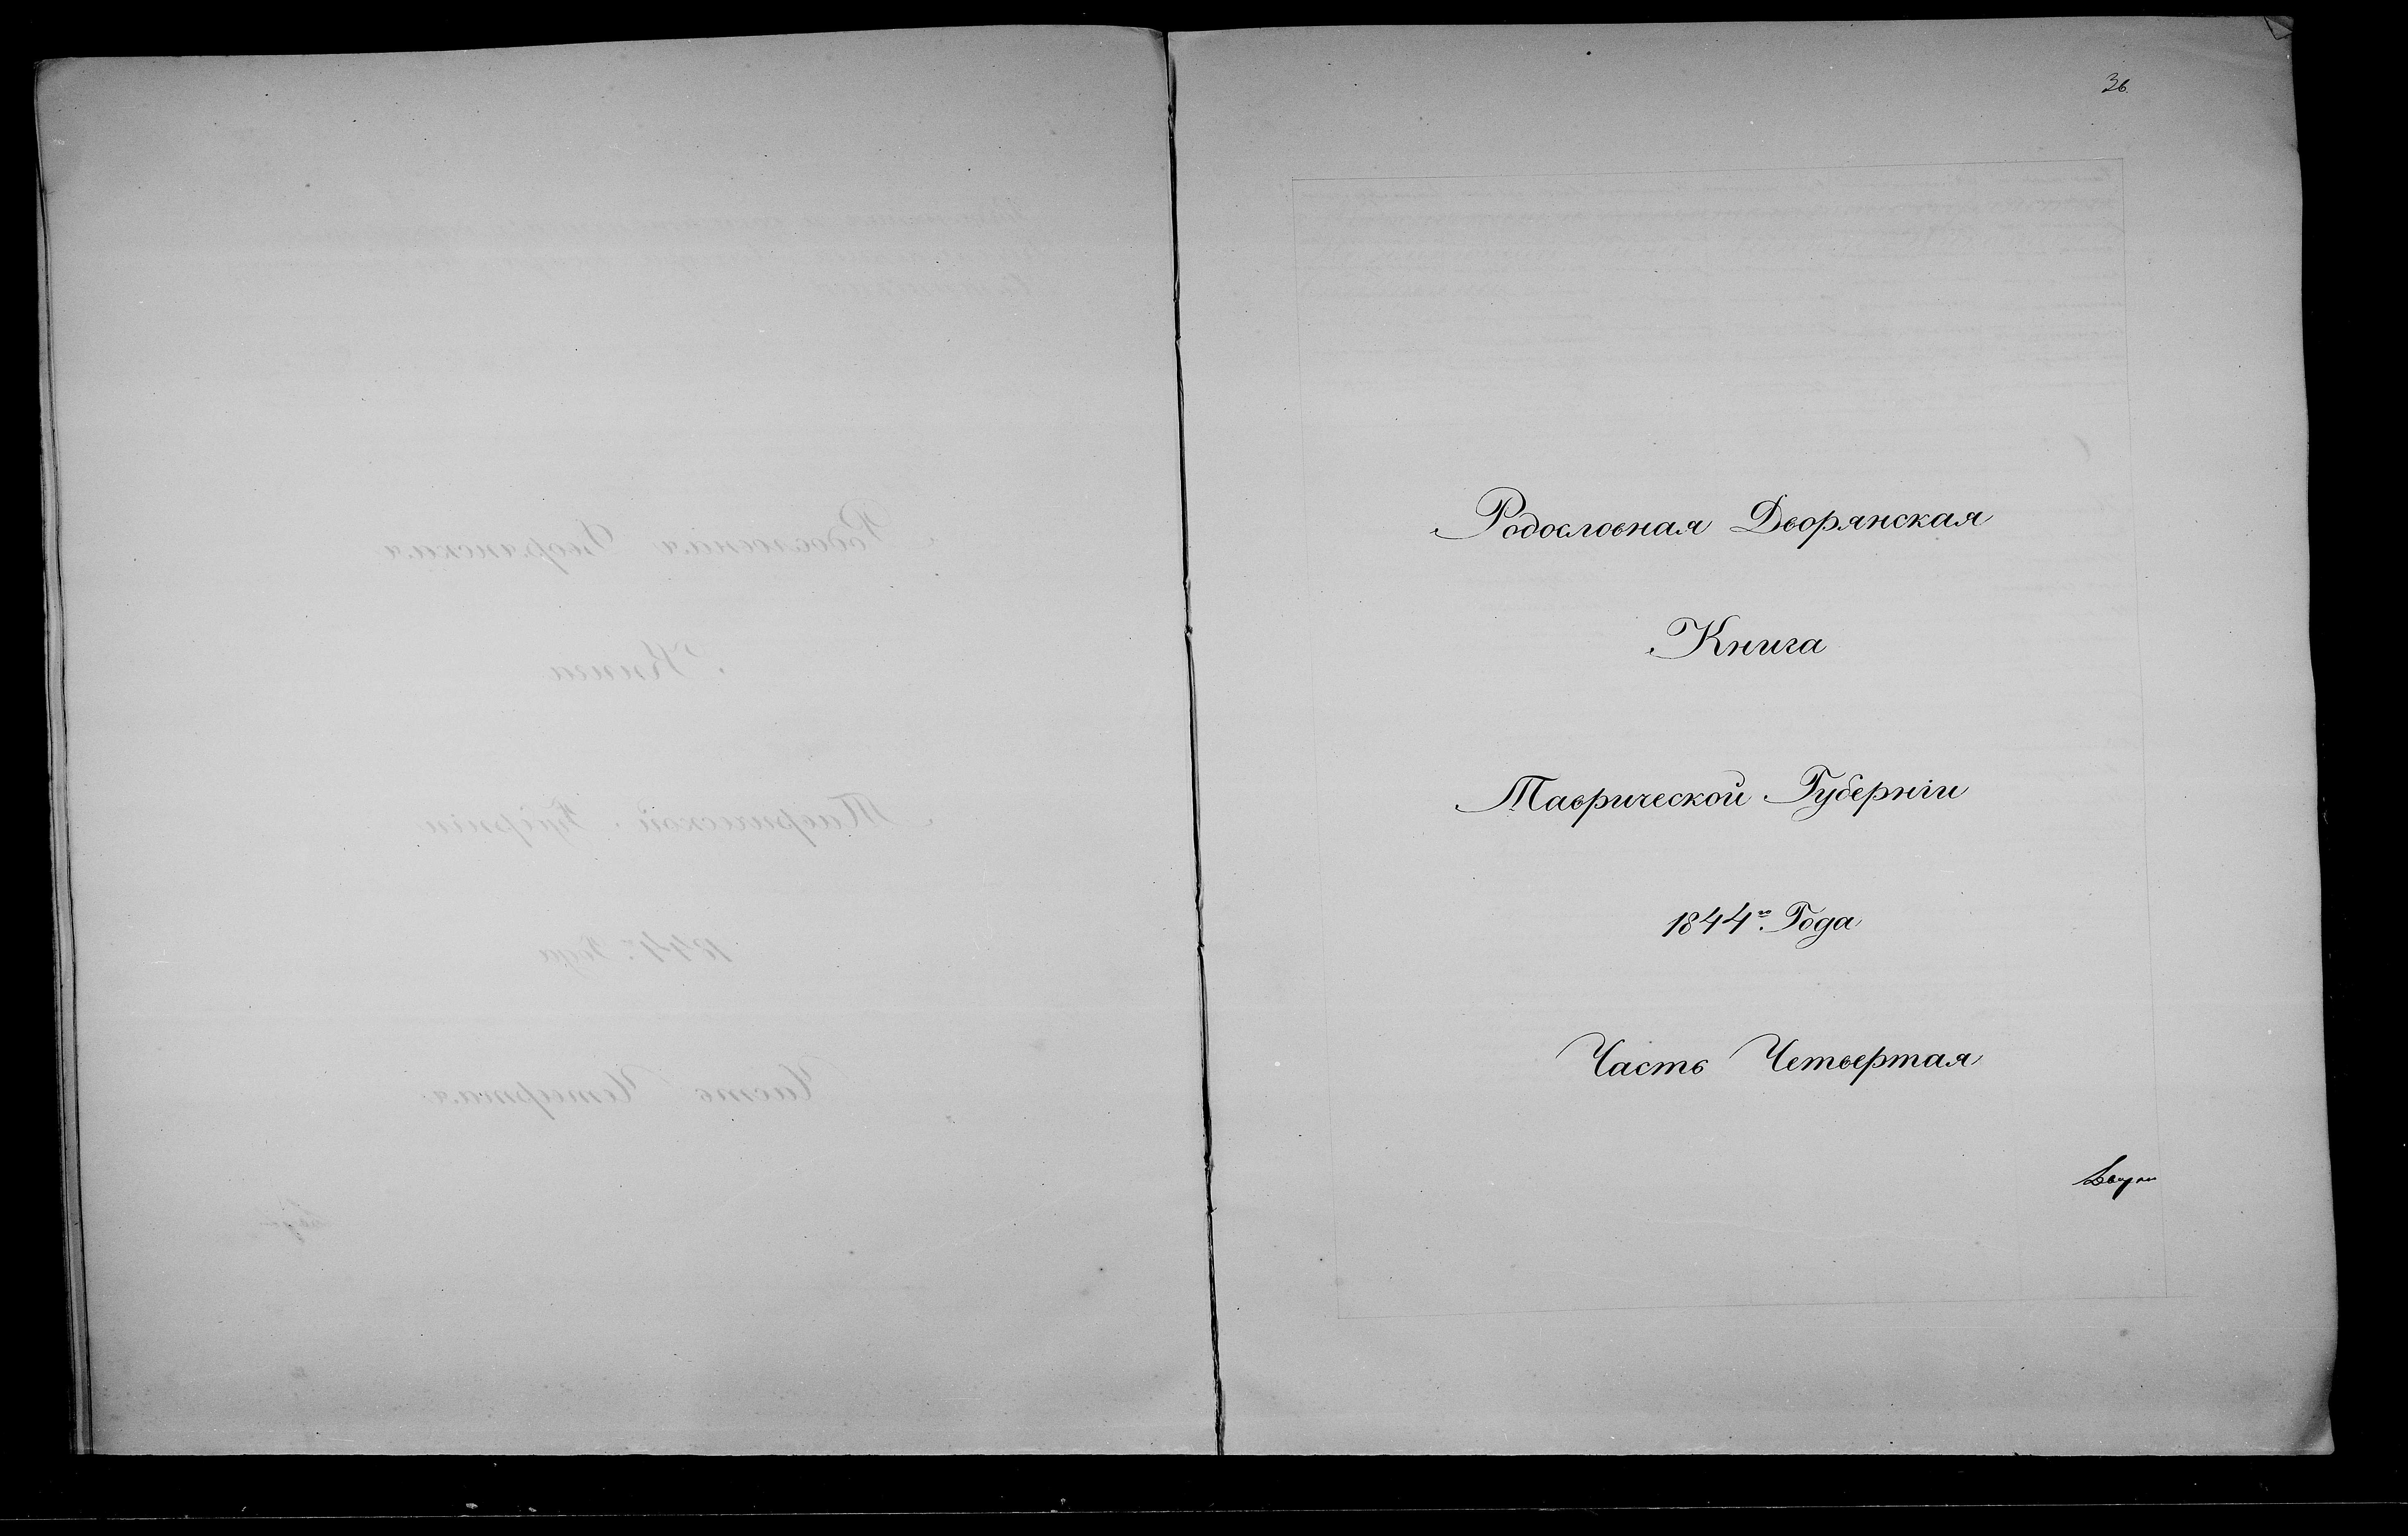 36.
Родословная Дворянская
Книга
Таврической Губернiи
1844го Года
Часть Четвертая